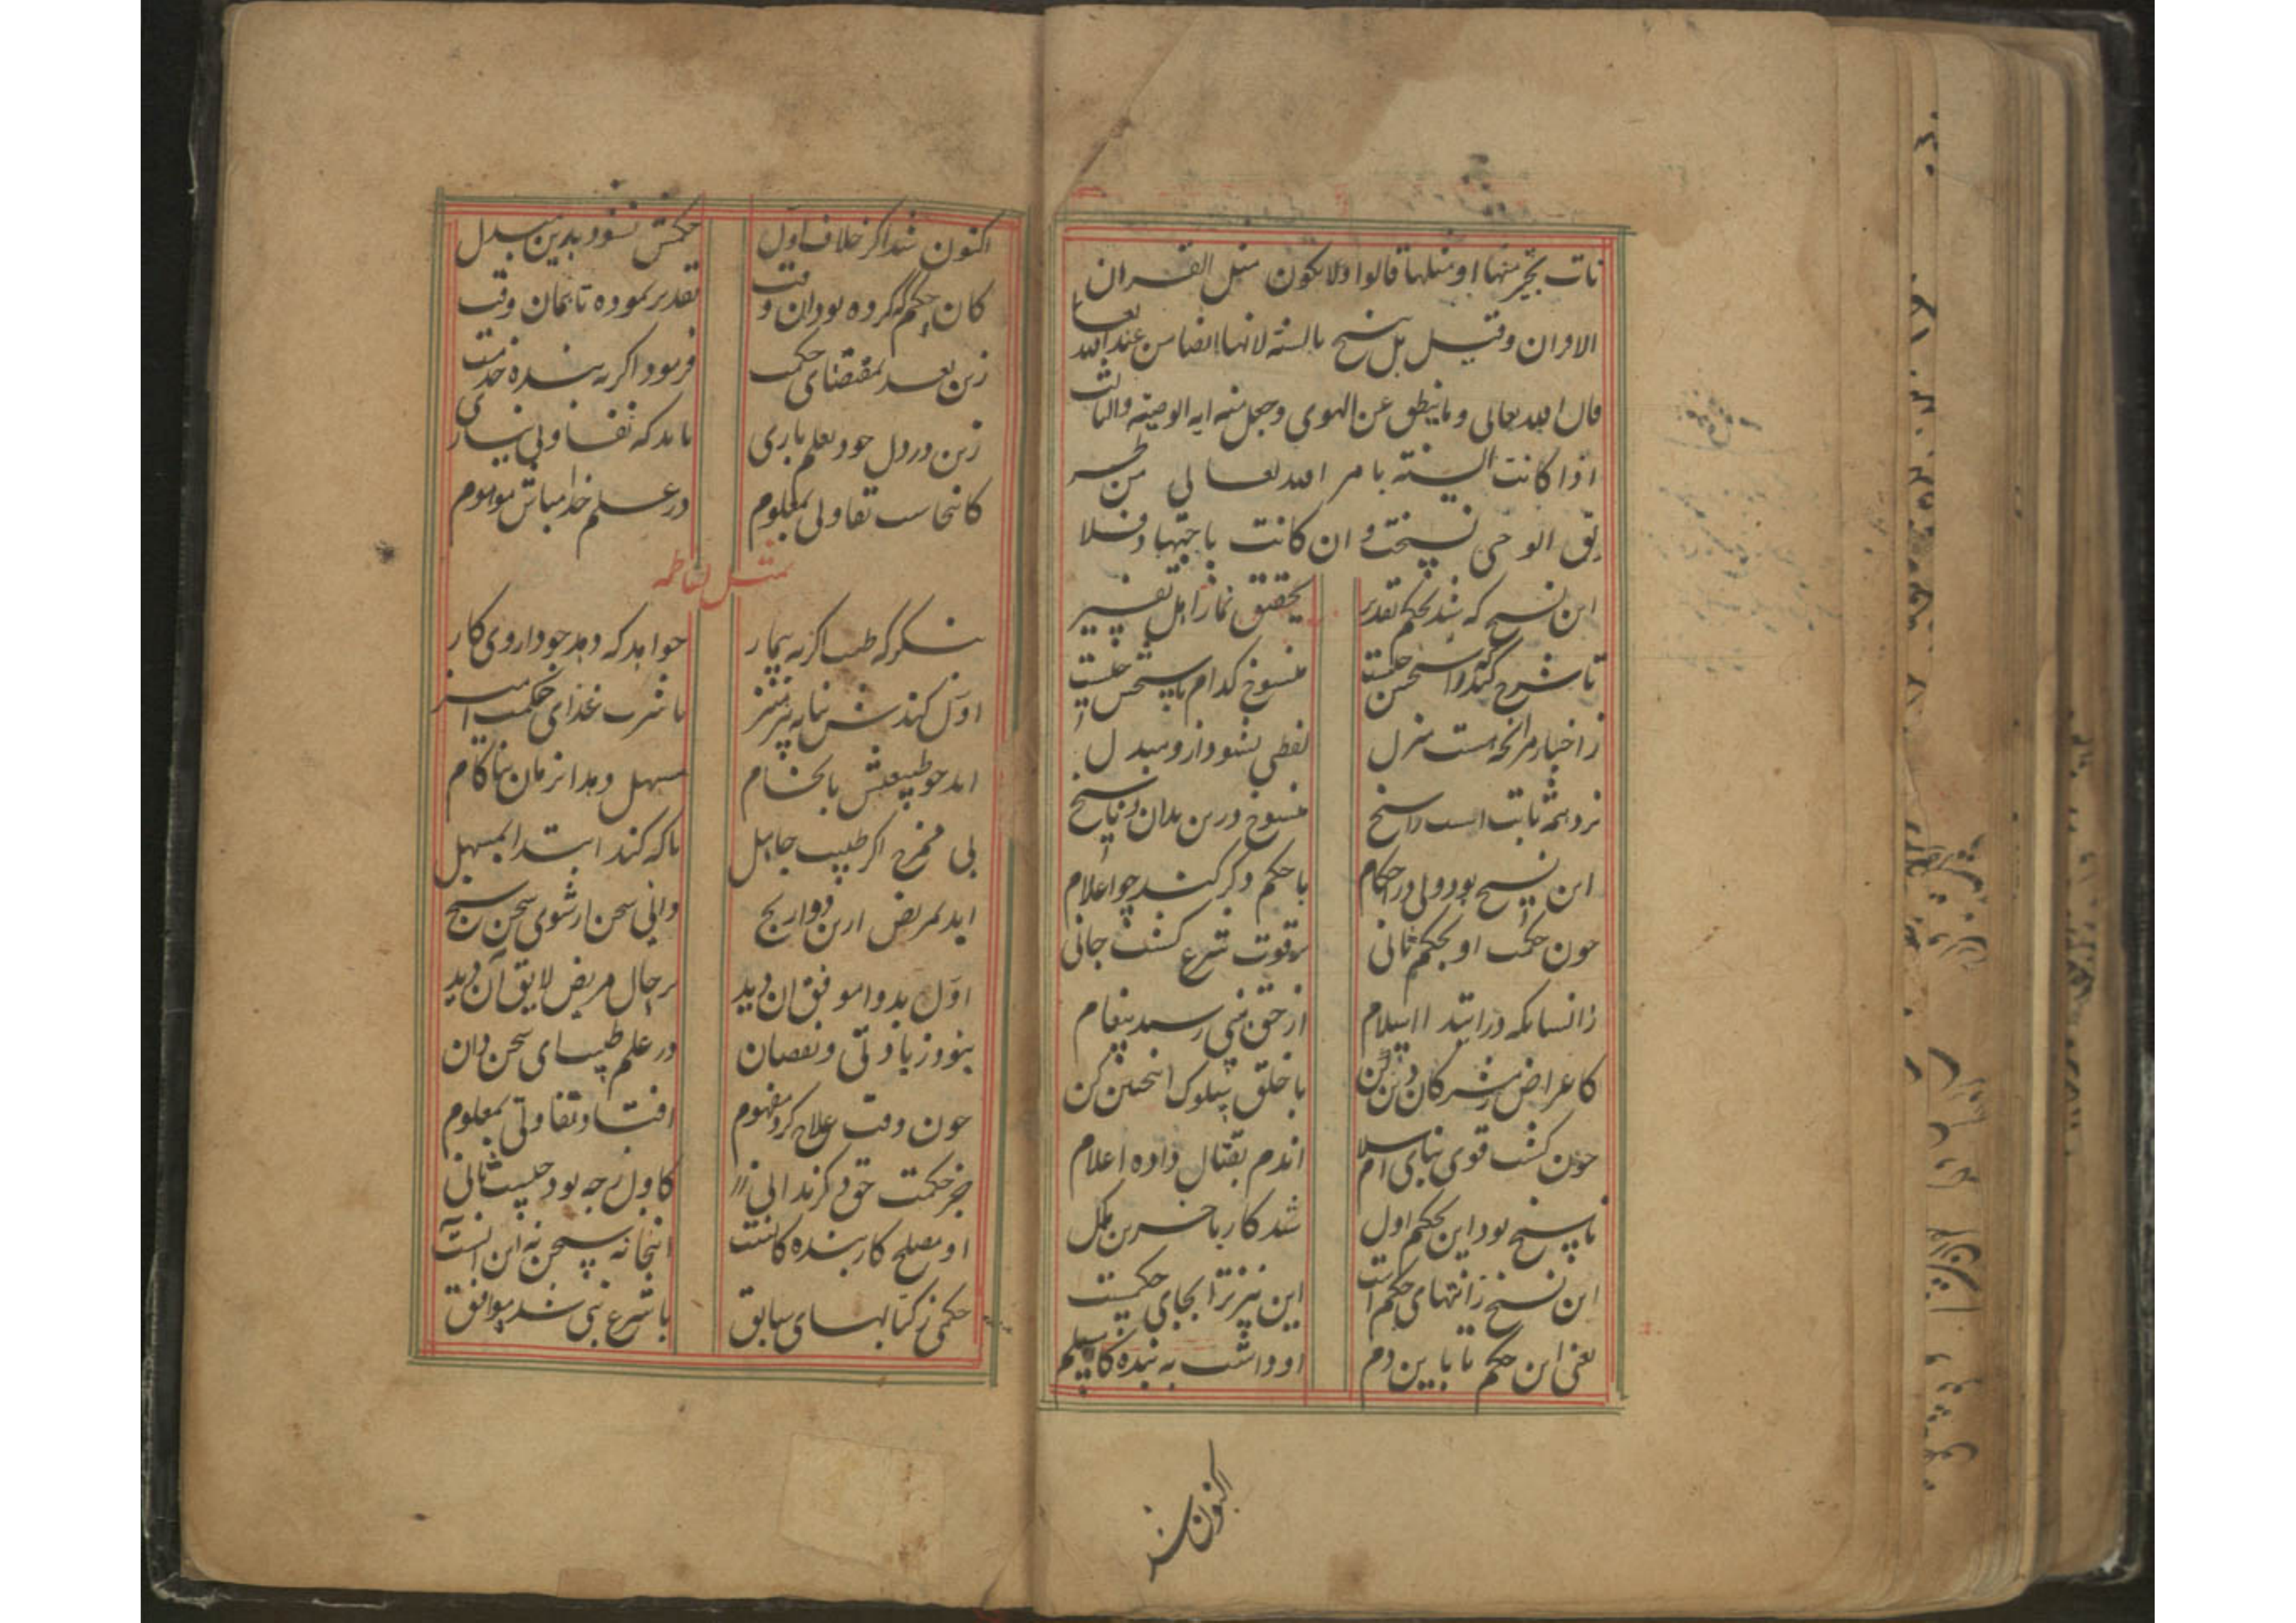 نات بخیر منها او مثلها قالوا ولا یکون مثل القران
الاوان وقیل بل ینسخ بالسنه لانها ایضا من عند الله تعا
قال الله تعالی وما ینطق عن الهوی وجعل منه ایه الوصیه والثالث
اذا کانت السنة بامر الله تعالی من طر
یق الوحی نسخت وان کانت باجتهاد فلا
این نسخ که شد بحکم تقدیر تحقیق نما ز اهل تفسیر
تا شرح کنند و ناسخش چیست منسوخ کدام
ز اخبار هر آنچه هست منزل لفظی نشود ازو مبدل
نزد همه ثابت است و راسخ منسوخ درین بدان و ناسخ
این نسخ بود ولی در احکام با حکم دکر کند چو اعلام
چون حکمت او بحکم ثانی بر قوت شرع کشت جانی
زانسانکه در ابتدا اسلام از حق بنبی رسید پیغام
کاعراض ز مشرکان دین کن با خلق سلوک اینچنین کن
چون کشت قوی بنای اسلام اندم بقتال داده اعلام
ناسخ بود این بحکم اول شد کار باخرین مکمل
این نسخ ز انتهای حکم است این نیز ترا بجای حکمیست
یعنی این حکم تا باین دم او داشت به بنده کا مسلم
اکنون شد
اکنون شد اکر خلاف اول حکمش نشود بدین مبدل
کان حکم که کرده بود آن وقت تقدیر نموده تا بمان وقت
زین بعد بمقتضای حکمت فرمود اکر به بنده خدمت
زین در دل خود بعلم باری باید که تفاوتی نیاری
کانجاست تفاوتی بمعلوم در علم خدا مباش موهوم
تمثیل لناظمه
بنکر که طبیب اکر به بیمار خواهد که دهد خود داروی کار
اول کندش بنا به پرهیز با شربت غذای حکمت امیز
اید چو طبیعتش بانجام مسهل دهد انزمان بناکام
بی ممزح اکر طبیب جاهل ناکه کند ابتدا بمسهل
اید بمریض ازین دوا رنج دانی سخن ار شوی سخن سنج
اول بدوا موافق ان دید بر حال مریض لایق آن دید
بنود زیادتی و نقصان در علم طبیب ای سخن دان
چون وقت علاج کرد مفهوم افتاد تفاوتی بمعلوم
جز حکمت حق دکر ندانی کاول ز چه بود چیست ثانی
او مصلح کار بنده کانست اینجا نه سخن نه این انست
حکمی ز کتابهای سابق با شرع نبی شد موافق